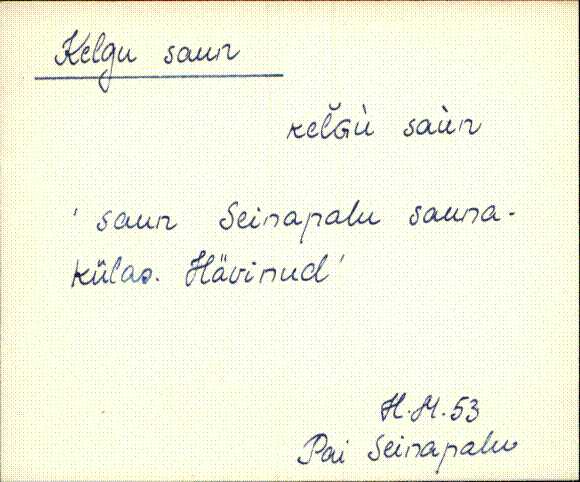 Kelgu saun
kel̆Gù saùn
'saun Seinapalu sauna-
külas. Hävinud'
H.M.53
Pai Seinapalu